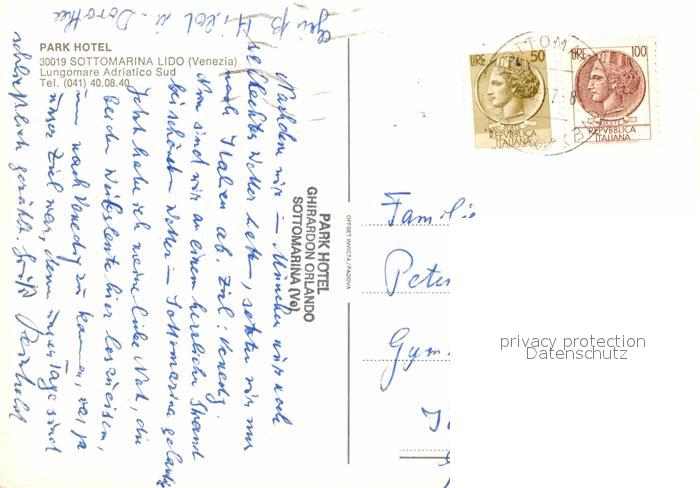 PARK HOTEL
30019 SOTTOMARINA LIDO (Venezia)
Lungomare Adriatico Sud
Tel. (041) 40.08.40
Nachdem wir — München nur noch
schlechtes Wetter hatten, setzten wir uns
nach Italien ab. Ziel: Venedig.
Nun sind wir an einem herrlichen Strand
bei schönstem Wetter — Sottomarina gelandet
Jetzt habe ich meine liebe Not, die
beiden Weibsleute hier loszueisen,
um nach Venedig zu kommen, was ja
unser Ziel war, denn unsere Tage sind
schliesslich gezählt. Gruß
Gruß u. Dorothee
PARK HOTEL
GHIRARDON ORLANDO
SOTTOMARINA (Ve)
OFFSET INVICTA / PADOVA
LIRE 50
REPVBBLICA
ITALIANA
LIRE 100
REPVBBLICA
ITALIANA
Familie
Peter
Gym
privacy protection
Datenschutz